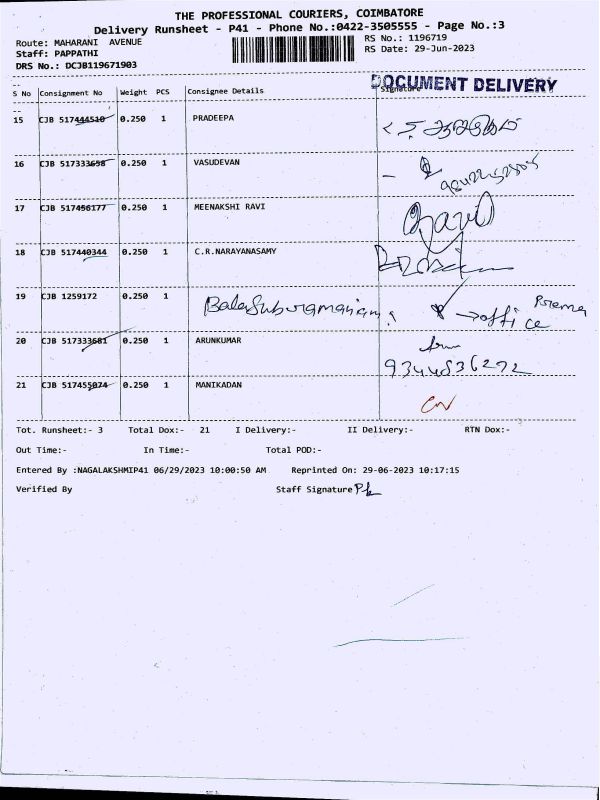 THE PROFESSIONAL COURIERS, COIMBATORE
Delivery Runsheet - P41 - Phone No.:0422-3505555 - Page No.:3
Route: MAHARANI AVENUE RS No.: 1196719
Staff: PAPPATHI RS Date: 29-Jun-2023
DRS No.: DCJB119671903
DOCUMENT DELIVERY
S No Consignment No Weight PCS Consignee Details Signature
15 CJB 517444510 0.250 1 PRADEEPA
16 CJB 517333658 0.250 1 VASUDEVAN
17 CJB 517456177 0.250 1 MEENAKSHI RAVI
18 CJB 517440344 0.250 1 C.R.NARAYANASAMY
19 CJB 1259172 0.250 1 Balasubramaniam Prema
→ office
20 CJB 517333681 0.250 1 ARUNKUMAR
9344836292
21 CJB 517455074 0.250 1 MANIKADAN
Tot. Runsheet:- 3 Total Dox:- 21 I Delivery:- II Delivery:- RTN Dox:-
Out Time:- In Time:- Total POD:-
Entered By :NAGALAKSHMIP41 06/29/2023 10:00:50 AM Reprinted On: 29-06-2023 10:17:15
Verified By Staff Signature